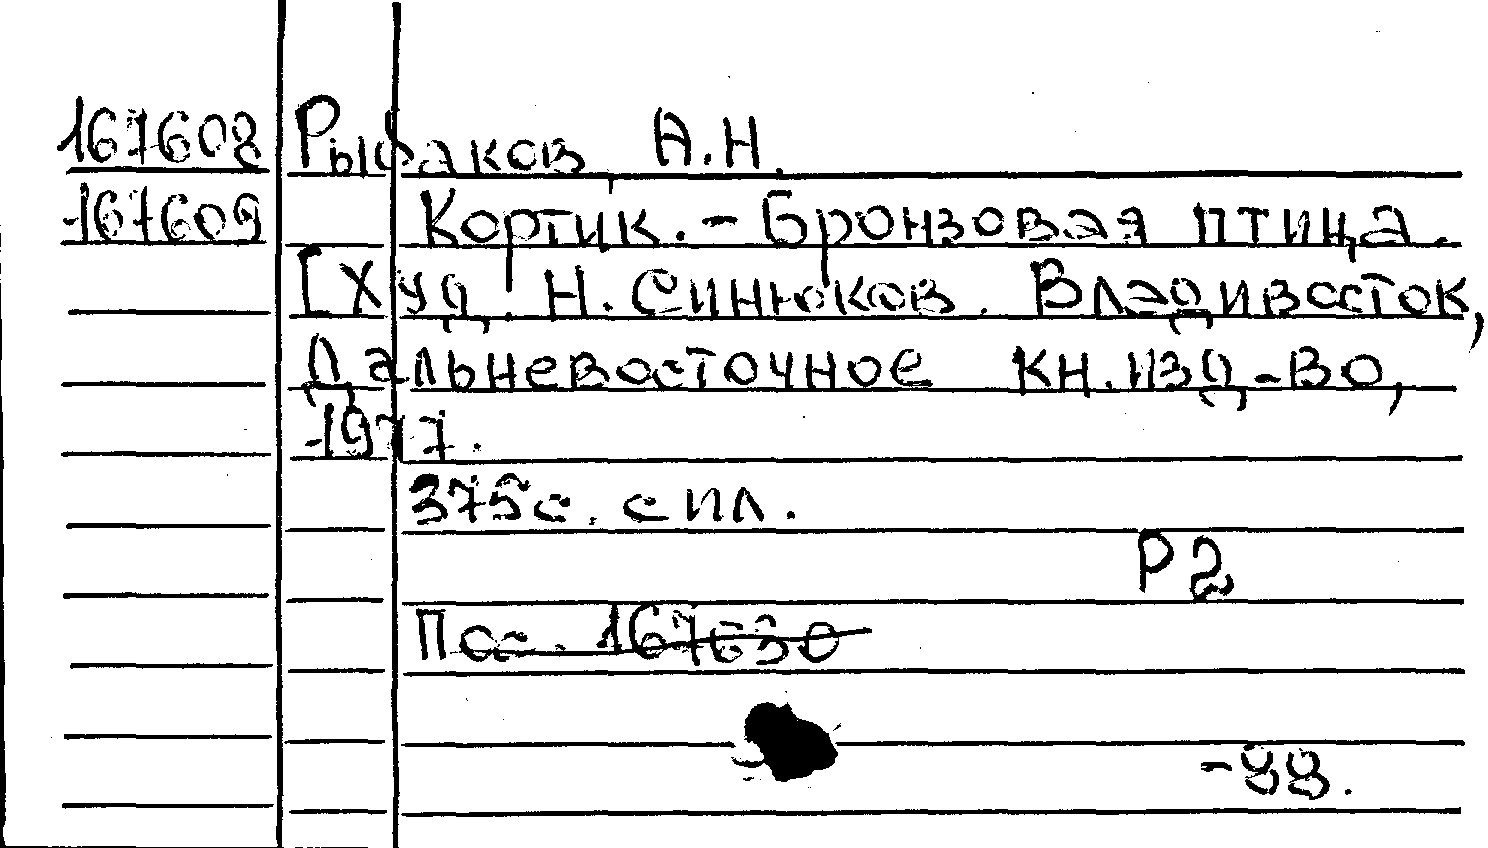 167608 Рыбаков, А.Н.
-167609 Кортик. - Бронзовая птица.
[Худ. Н. Синюков. Владивосток,
Дальневосточное кн.изд-во,
1977.
375с. с ил.
Р2
Пос. 167630
-88.